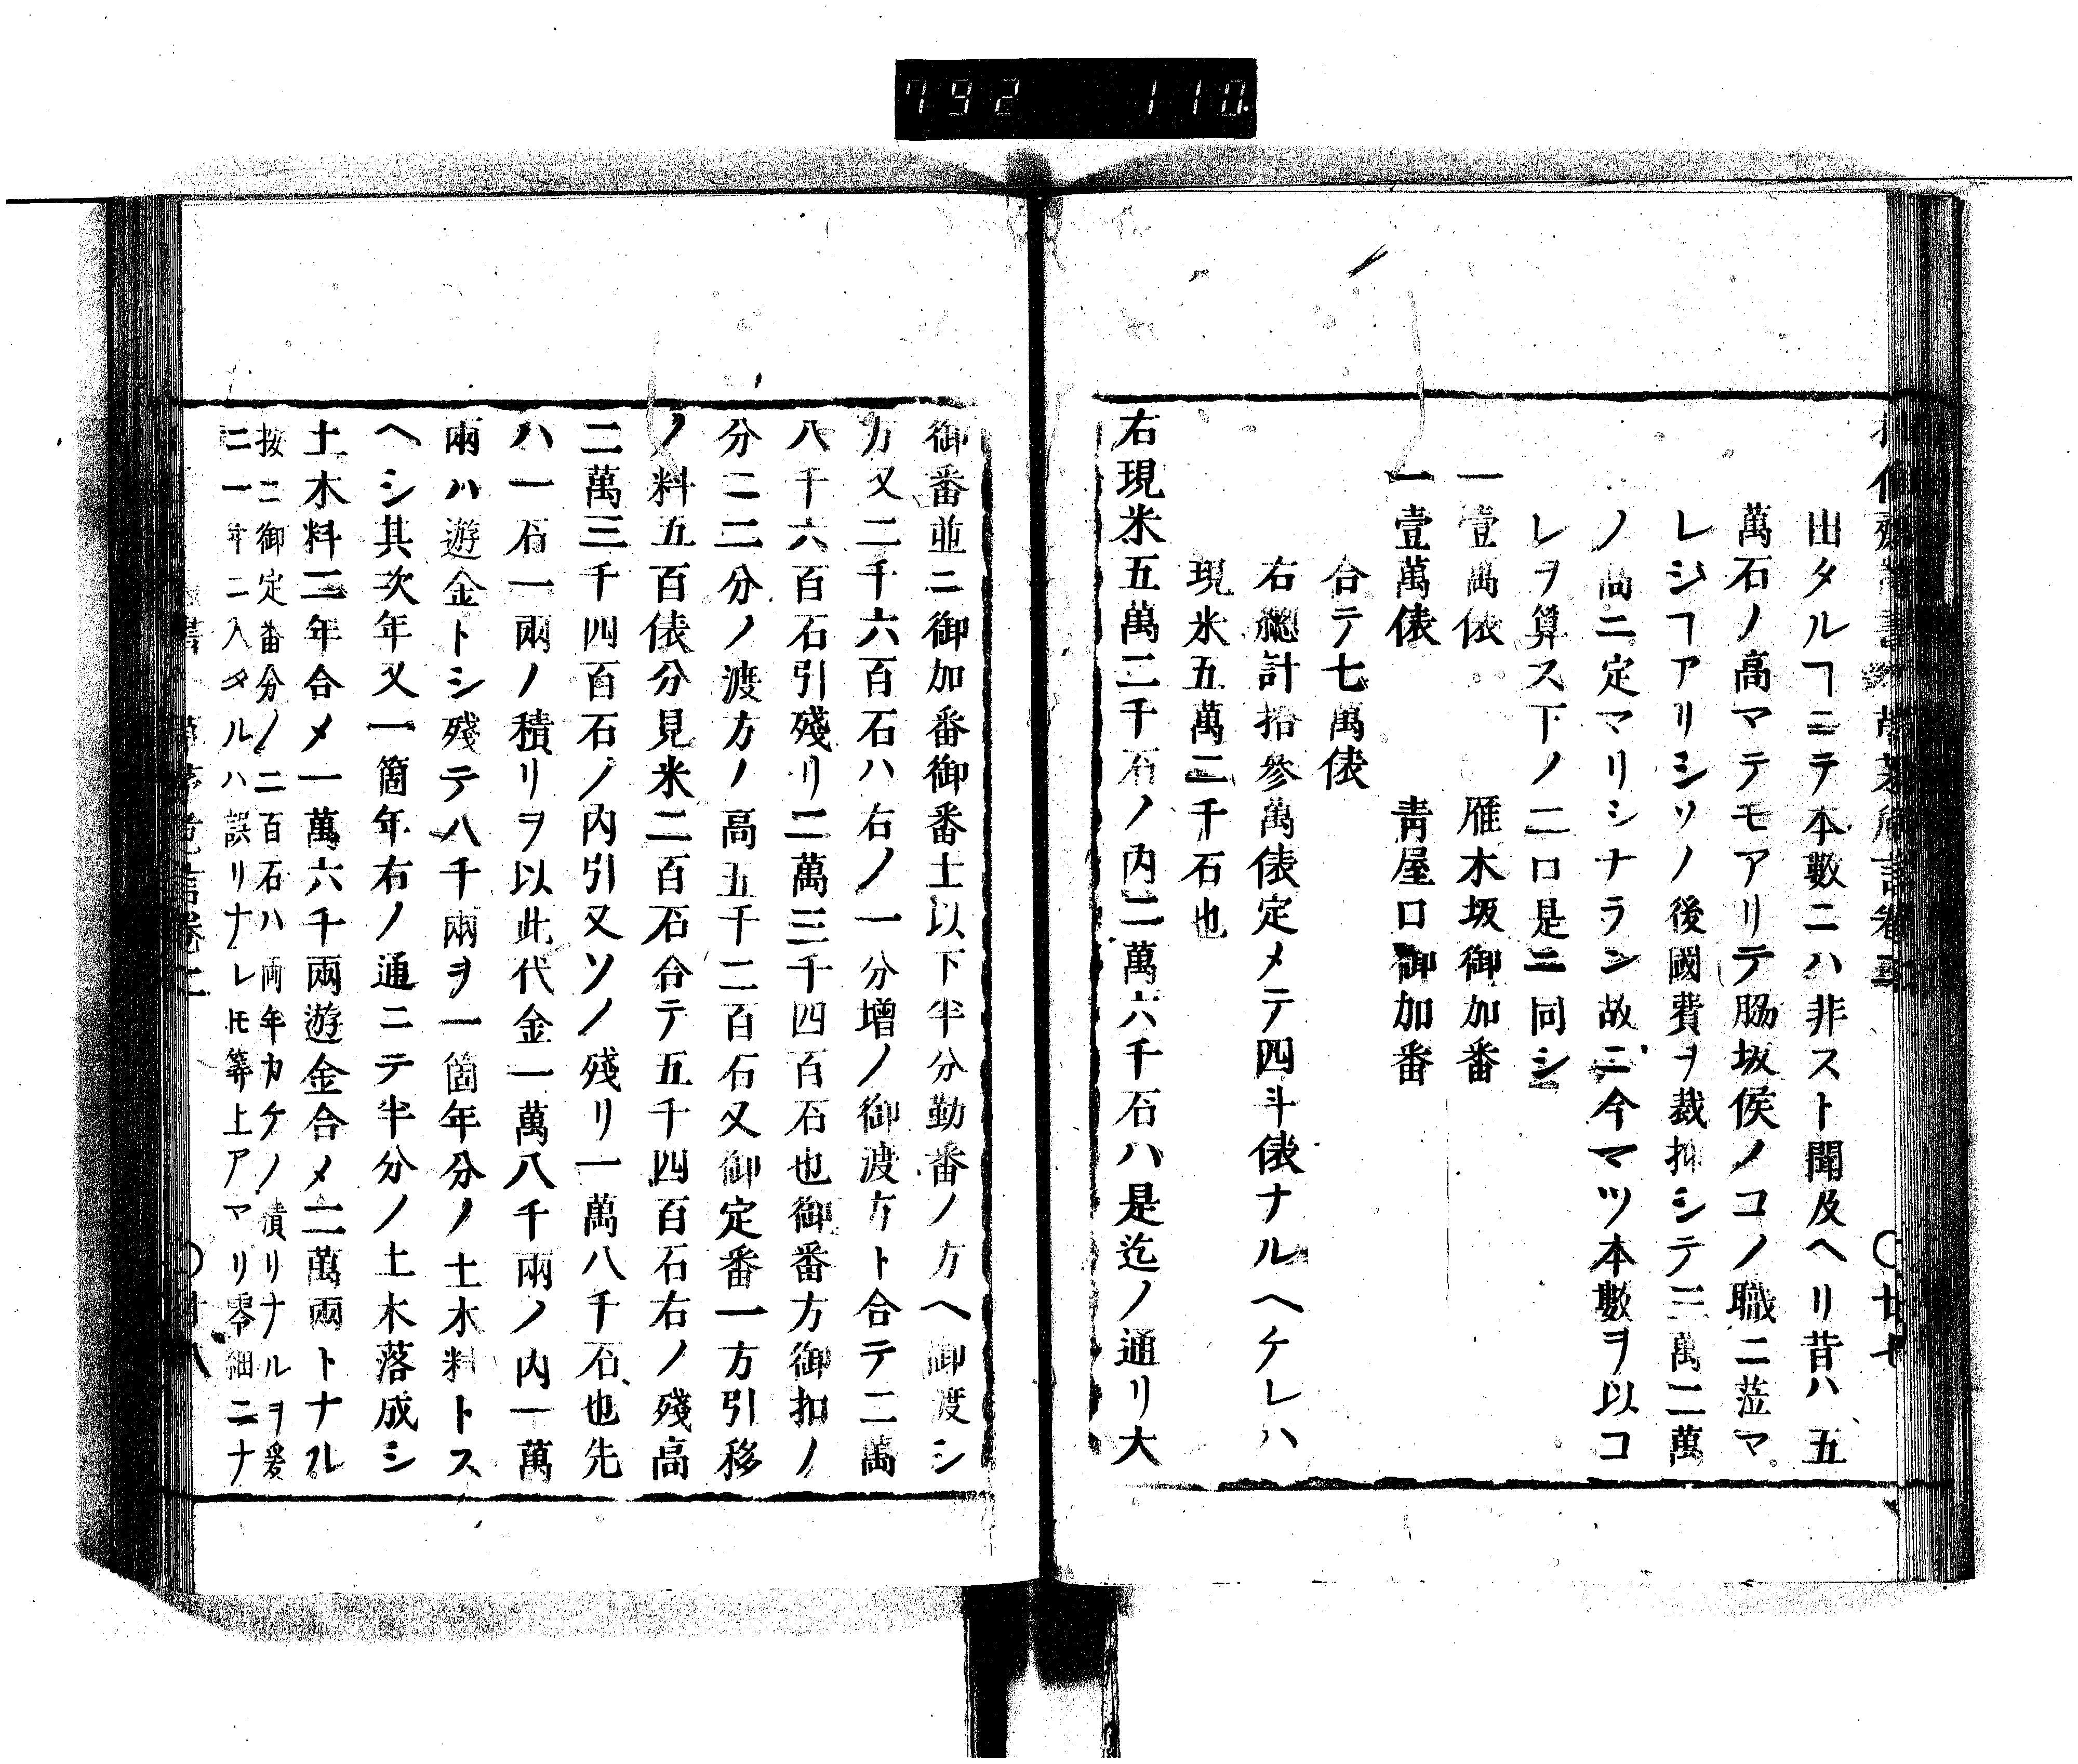 792 110
出タルヿニテ本數ニハ非スト聞及ヘリ昔ハ五
萬石ノ高マテモアリテ脇坂侯ノコノ職ニ莅マ
レシヿアリシソノ後國費ヲ裁抑シテ三萬二萬
ノ高ニ定マリシナラン故ニ今マツ本數ヲ以コ
レヲ算ス下ノ二口是ニ同シ
一壹萬俵 雁木坂御加番
一壹萬俵 靑屋口御加番
合テ七萬俵
右總計拾參萬俵定メテ四斗俵ナルヘケレハ
現米五萬二千石也
右現米五萬二千石ノ内二萬六千石ハ是迄ノ通リ大
御番並ニ御加番御番士以下半分勤番ノ方ヘ御渡シ
方又二千六百石ハ右ノ一分增ノ御渡方ト合テ二萬
八千六百石引殘リ二萬三千四百石也御番方御扣ノ
分ニ二分ノ渡方ノ高五千二百石又御定番一方引移
ノ料五百俵分見米二百石合テ五千四百石右ノ殘高
二萬三千四百石ノ内引又ソノ殘リ一萬八千石也先
ハ一石一兩ノ積リヲ以此代金一萬八千兩ノ内一萬
兩ハ遊金トシ殘テ八千兩ヲ一箇年分ノ土木料トス
ヘシ其次年又一箇年右ノ通ニテ半分ノ土木落成シ
土木料二年合メ一萬六千兩遊金合メ二萬兩トナル
按ニ御定番分ノ二百石ハ両年カケノ積リナルヲ爰
ニ一年ニ入タルハ誤リナレ𪜈筭上アマリ零細ニナ